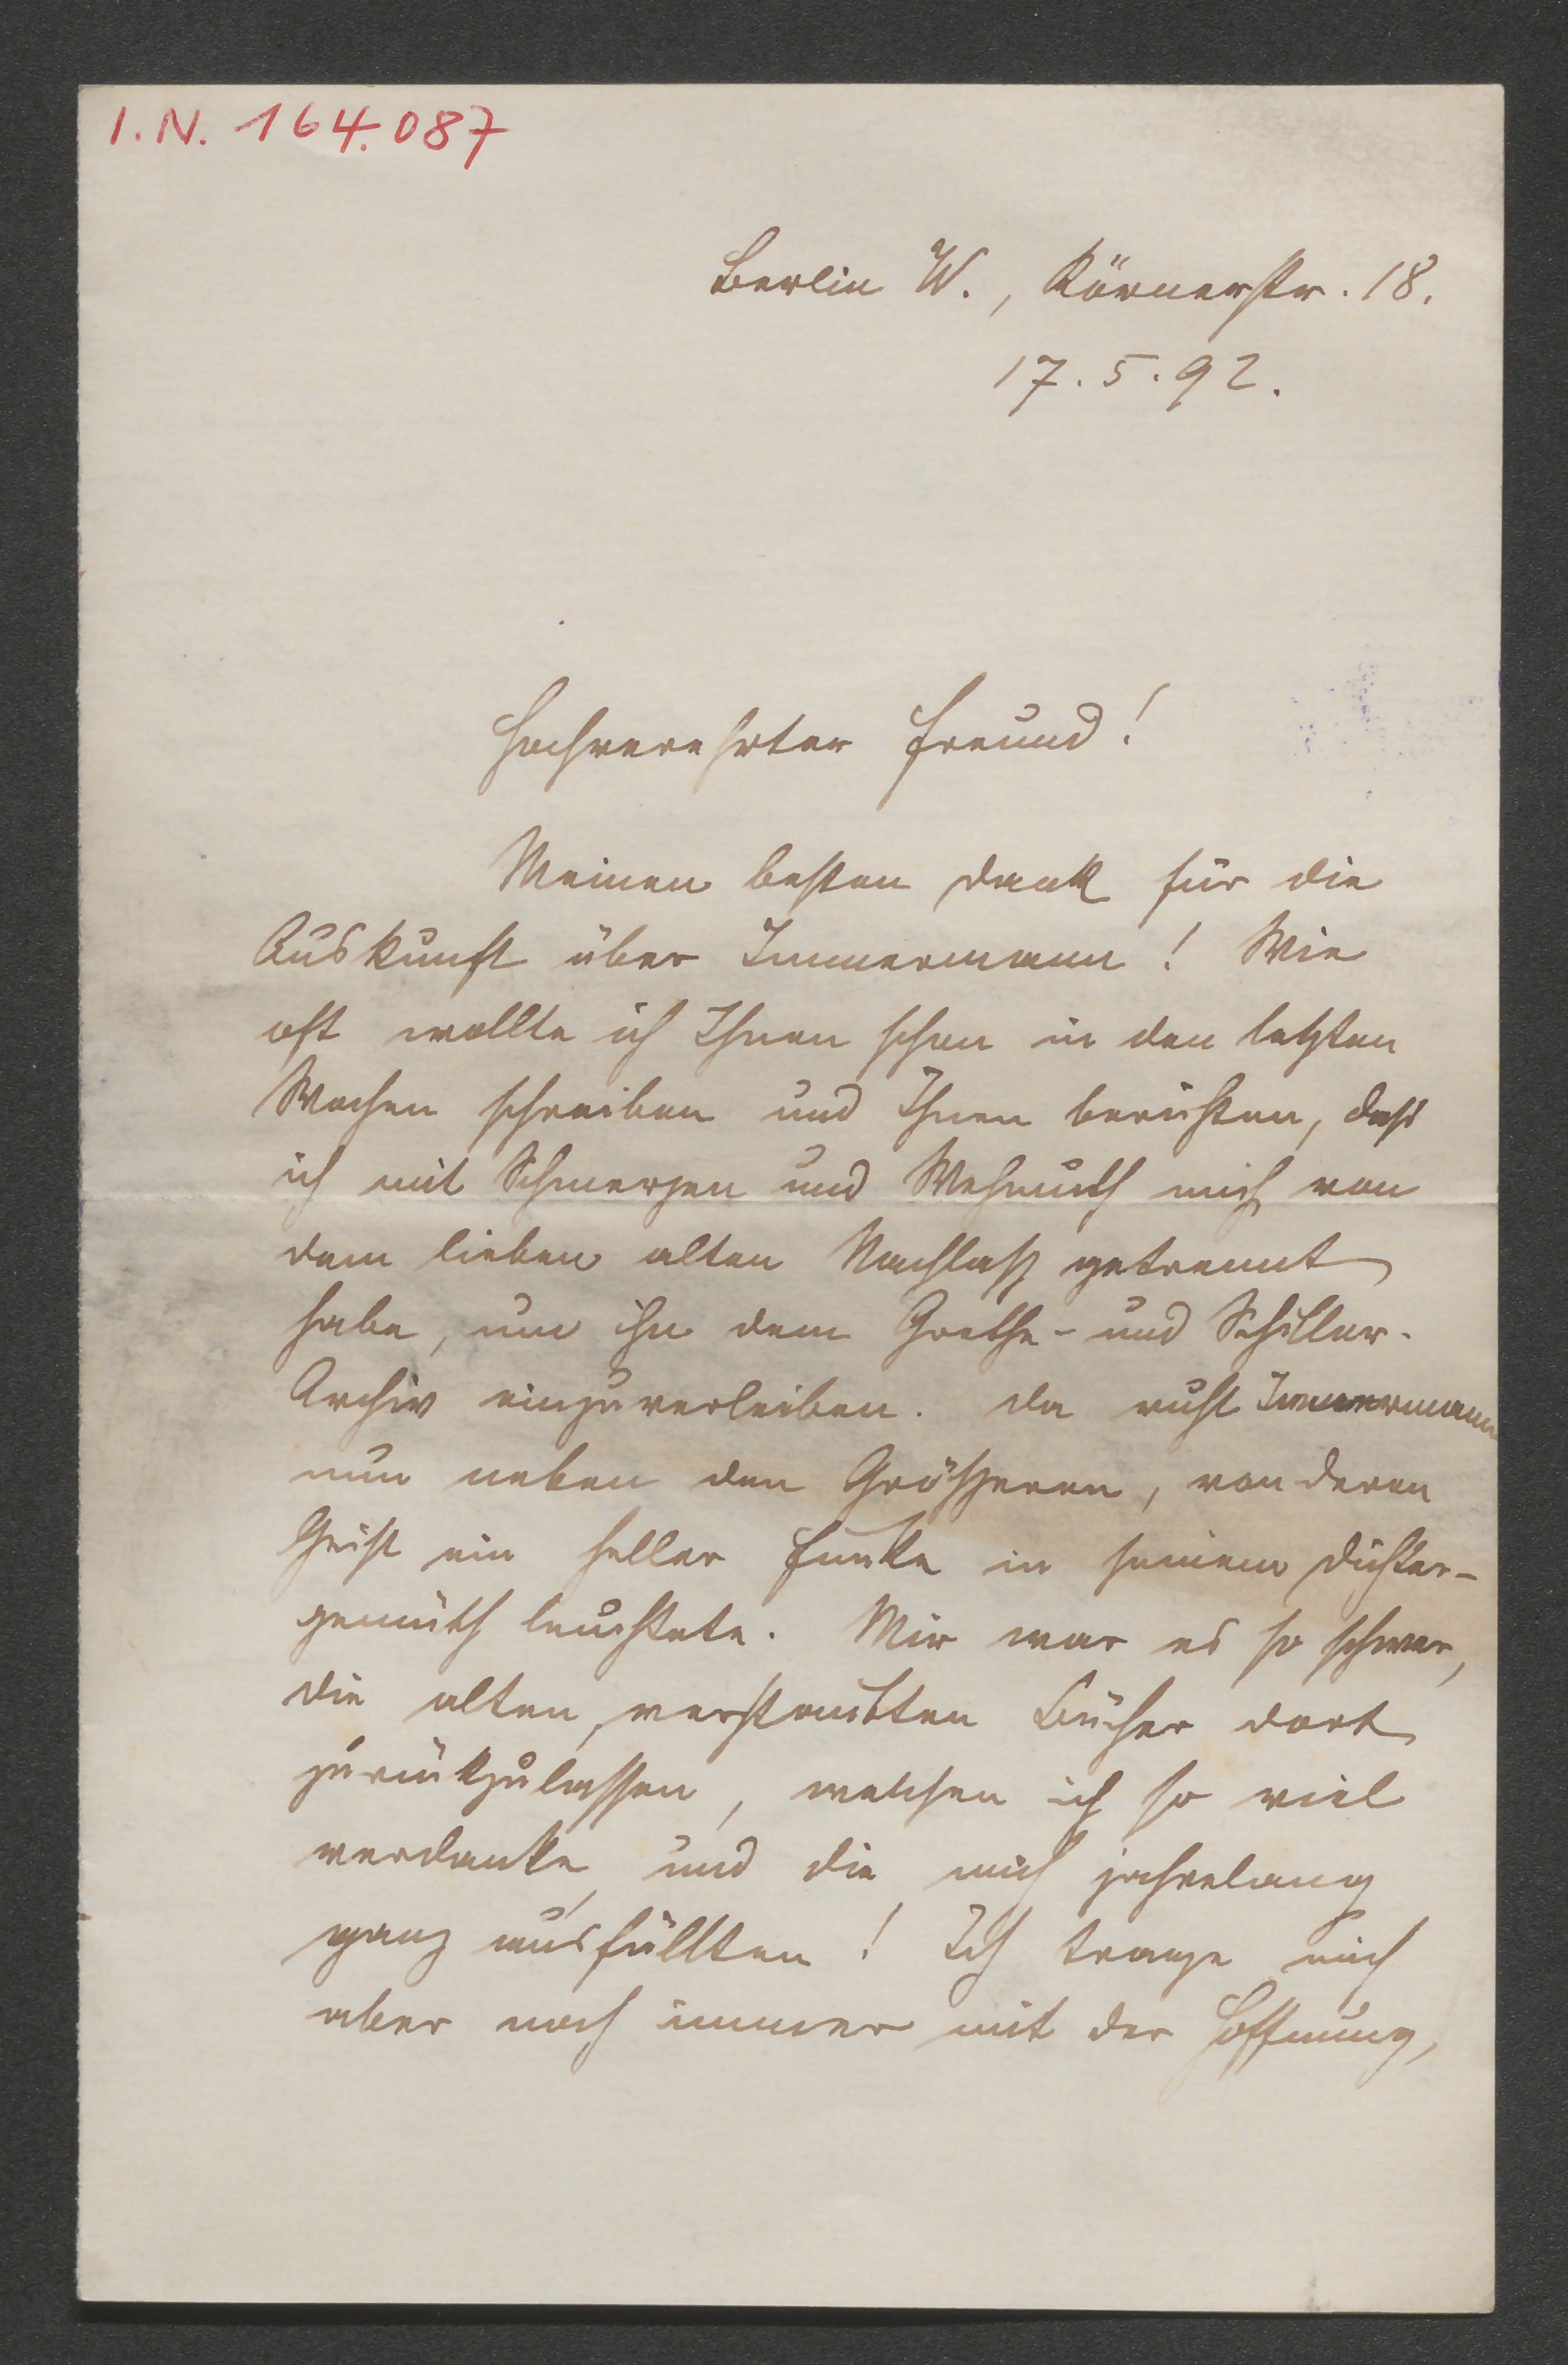 I.N. 164.087
Berlin W., Körnerstr. 18.
17.5.92.
Hochverehrter Freund!
Meinen besten Dank für die
Auskunft über Immermann! Wie
oft wollte ich Ihnen schon in den letzten
Wochen schreiben und Ihnen berichten, dass
ich mit Schmerzen und Wehmuth mich von
dem lieben alten Nachlaß getrennt
habe, um ihn dem Goethe- und Schiller-
Archiv einzuverleiben. Da ruht Immermann
nun neben den Größeren, von deren
Geist ein heller Funke in seinem Dichter-
gemüth leuchtete. Mir war es so schwer,
die alten, verstaubten Bücher dort
zurückzulassen, welchen ich so viel
verdanke, und die mich jahrelang
ganz ausfüllten! Ich trage mich
aber noch immer mit der Hoffnung,